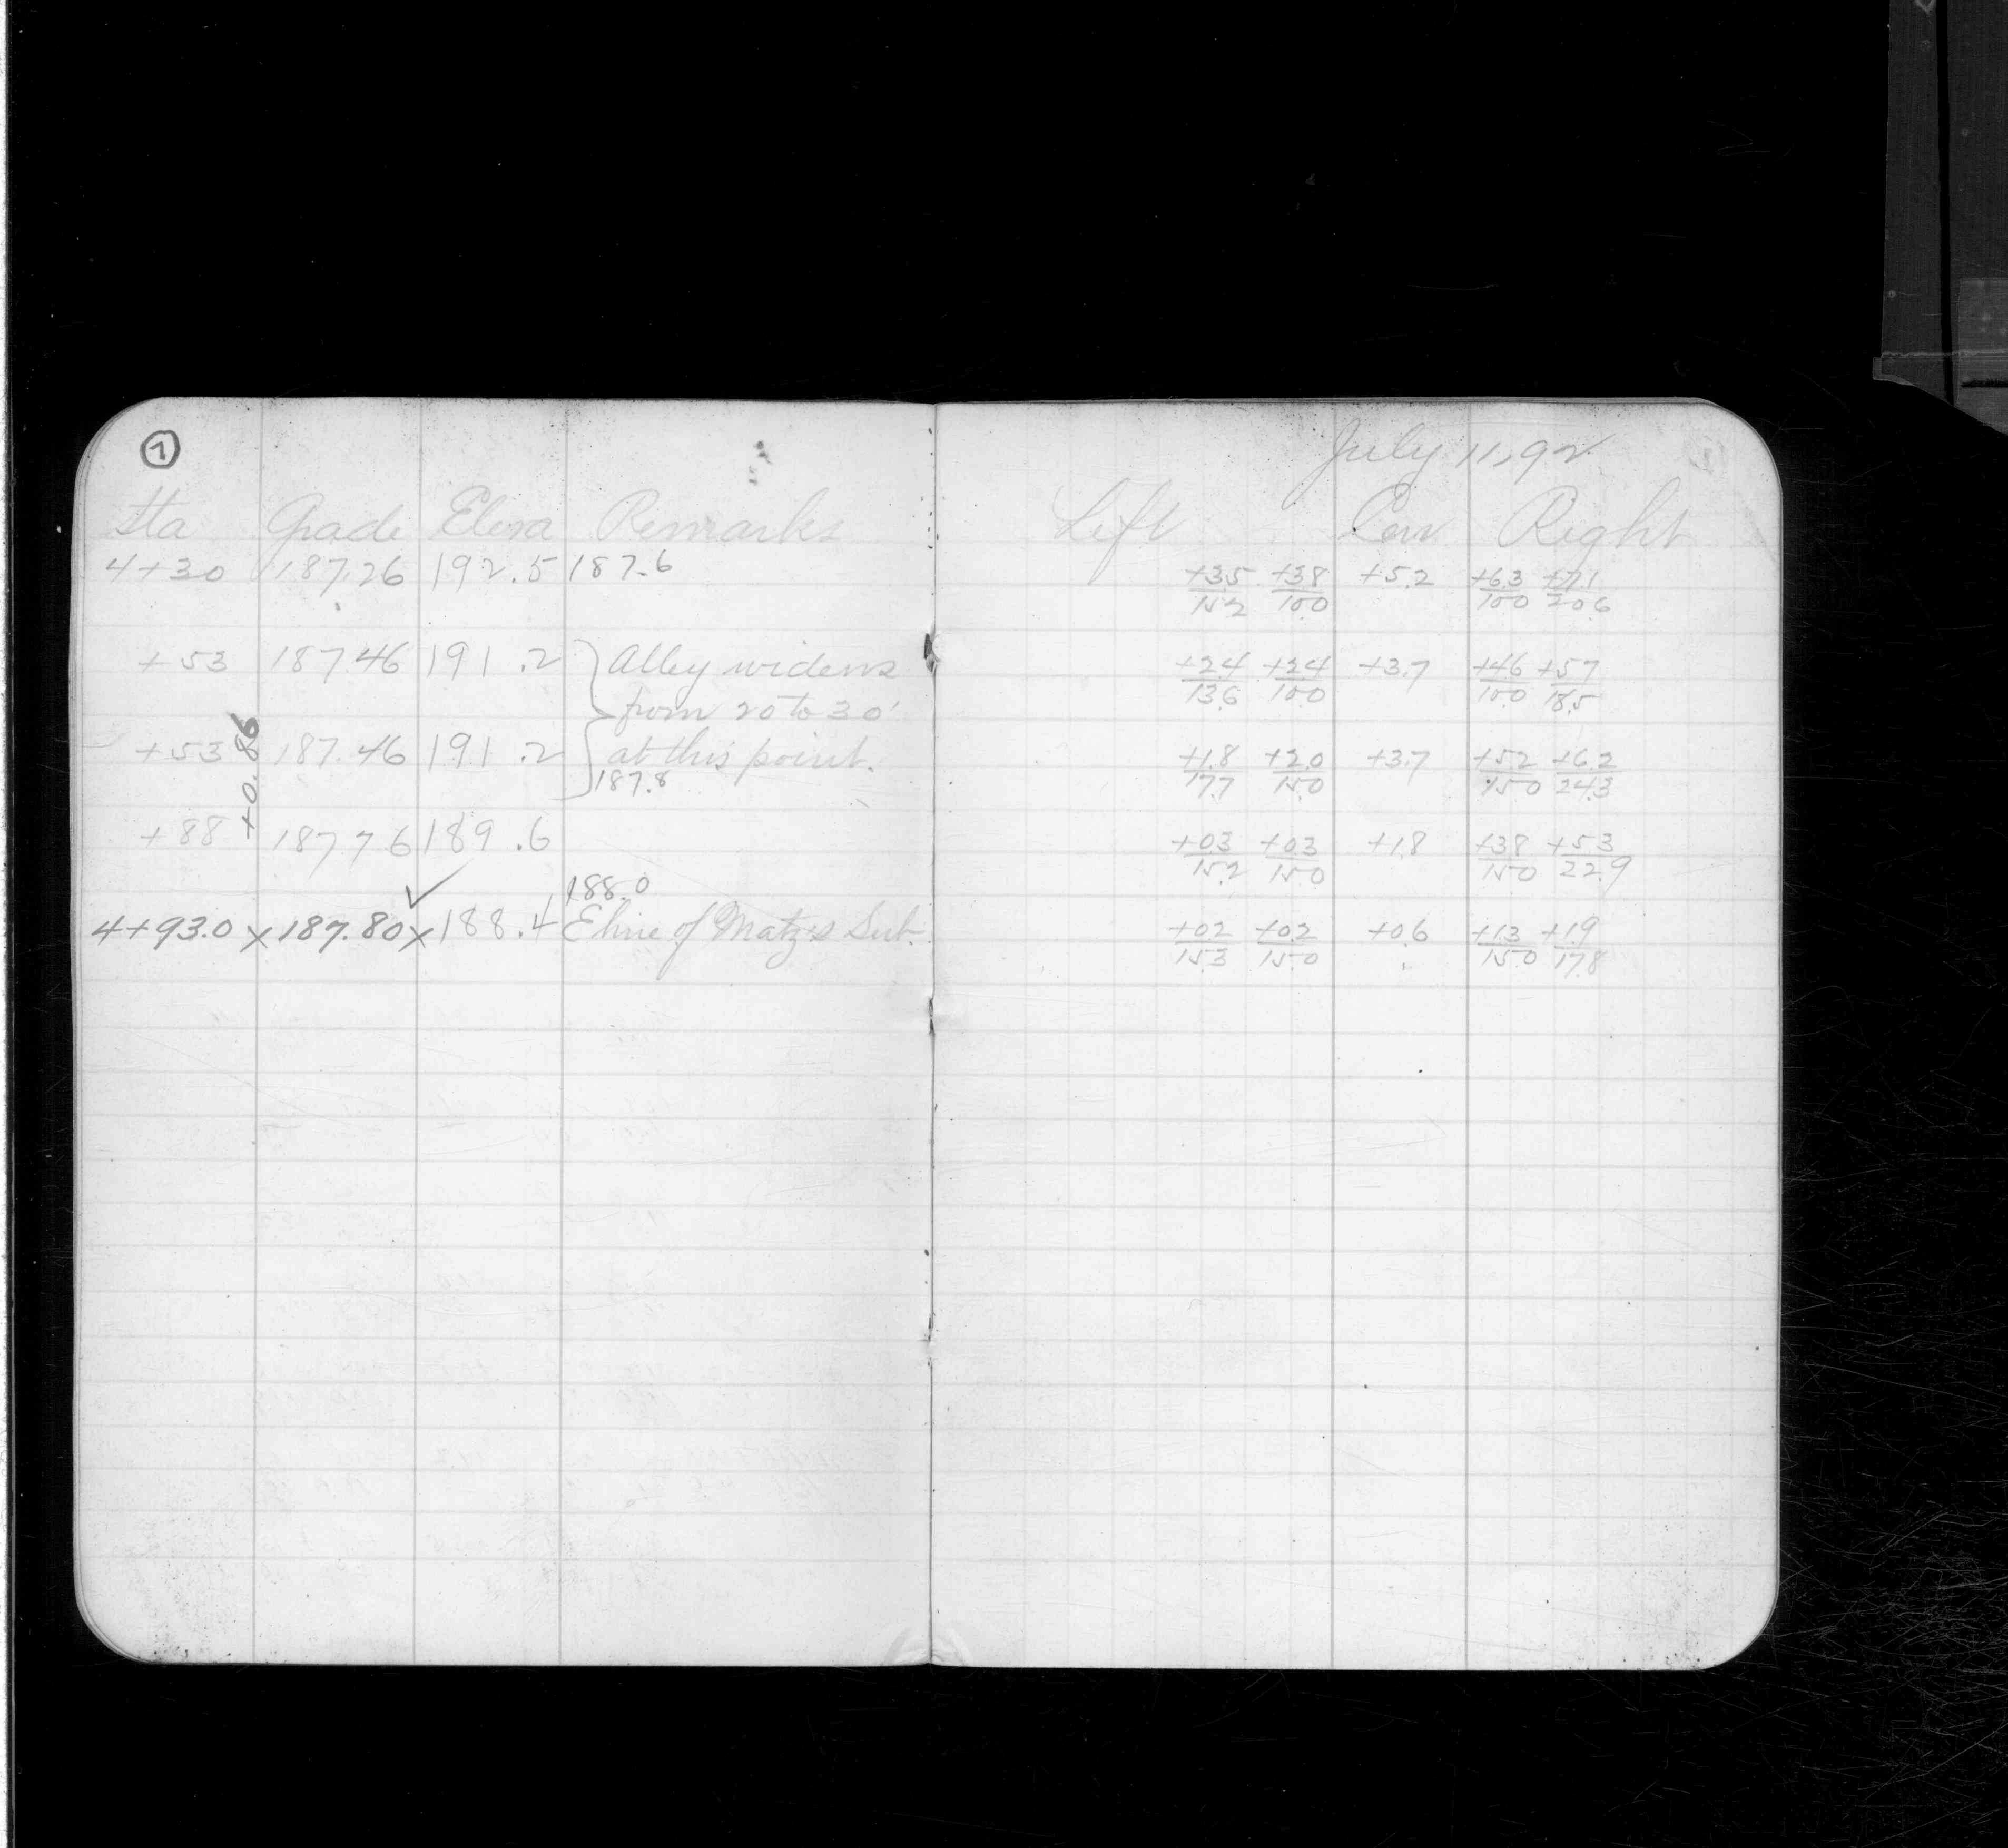 7
July 11, 92
Sta Grade Eleva Remarks Left Cen Right
4+30 187.26 192.5 187.6 +3.5/15.2 +3.8/10.0 +5.2 +6.3/10.0 +7.1/20.6
+53 187.46 191.2 Alley widens +2.4/13.6 +2.4/10.0 +3.7 +4.6/10.0 +5.7/18.5
from 20 to 30'
+53 187.46 191.2 at this point. +1.8/17.7 +2.0/15.0 +3.7 +5.2/15.0 +6.2/24.3
187.8
+0.86
+88 187.76 189.6 +0.3/15.2 +0.3/15.0 +1.8 +3.8/15.0 +5.3/22.9
188.0
4+93.0 x 187.80 x 188.4 E line of Matz's Sub. +0.2/15.3 +0.2/15.0 +0.6 +1.3/15.0 +1.9/17.8